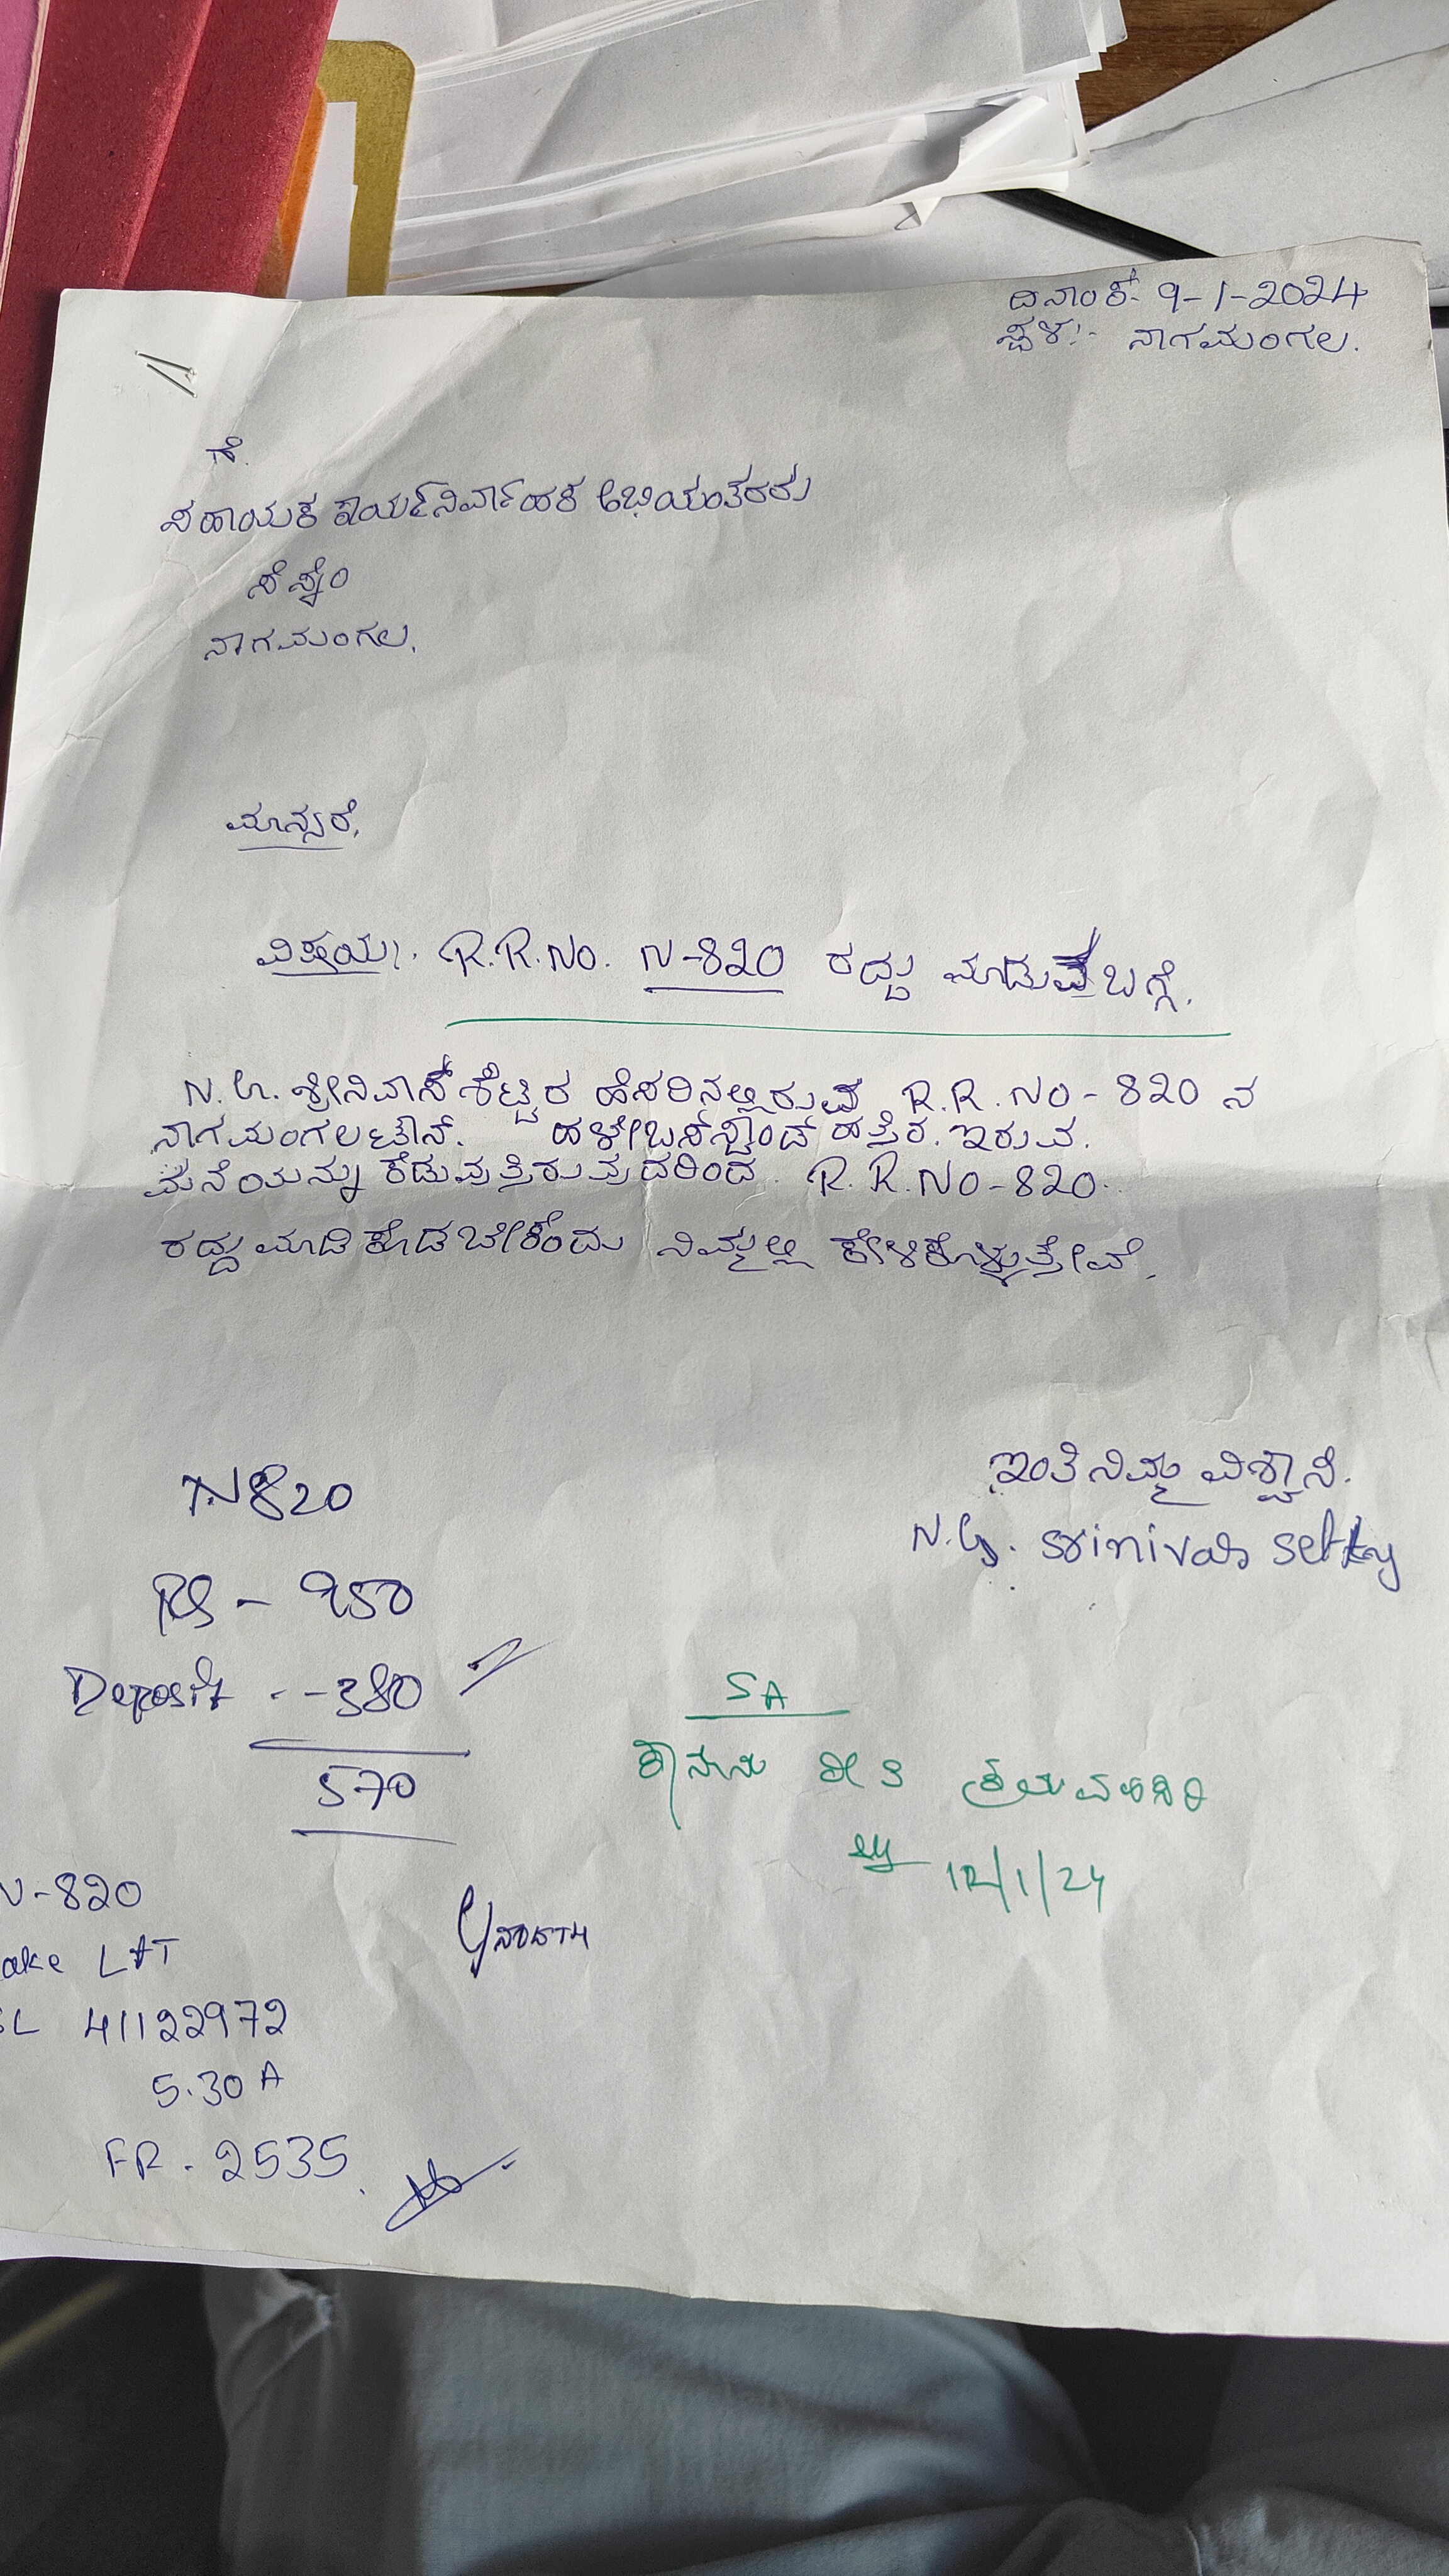 ದಿನಾಂಕ:- 9-1-2024
ಸ್ಥಳ:- ನಾಗಮಂಗಲ.
ಗೆ.
ಸಹಾಯಕ ಕಾರ್ಯನಿರ್ವಾಹಕ ಅಭಿಯಂತರರು
ಸೆಸ್ಕಂ
ನಾಗಮಂಗಲ.
ಮಾನ್ಯರೆ,
ವಿಷಯ:. R.R.No. N-820 ರದ್ದು ಮಾಡುವ ಬಗ್ಗೆ.
N.G. ಶ್ರೀನಿವಾಸ್ ಶೆಟ್ಟರ ಹೆಸರಿನಲ್ಲಿರುವ R.R.NO-820 ನ
ನಾಗಮಂಗಲ ಟೌನ್. ಹಳೇಬಸ್‌ಸ್ಟಾಂಡ್ ಹತ್ತಿರ. ಇರುವ.
ಮನೆಯನ್ನು ಕೆಡುವುತ್ತಿರುವುದರಿಂದ. R.R.NO-820.
ರದ್ದು ಮಾಡಿ ಕೊಡಬೇಕೆಂದು ನಿಮ್ಮಲ್ಲಿ ಕೇಳಿಕೊಳ್ಳುತ್ತೇವೆ.
ಇಂತಿ ನಿಮ್ಮ ವಿಶ್ವಾಸಿ.
N.G. Srinivas Setty
N820
RS - 950
Deposit - -380
570
SA
ಕಾನೂನು ರೀತಿ ಕ್ರಮವಹಿಸಿರಿ
12/1/24
N-820
ake L&T
SL 41122972
5.30 A
FR - 2535